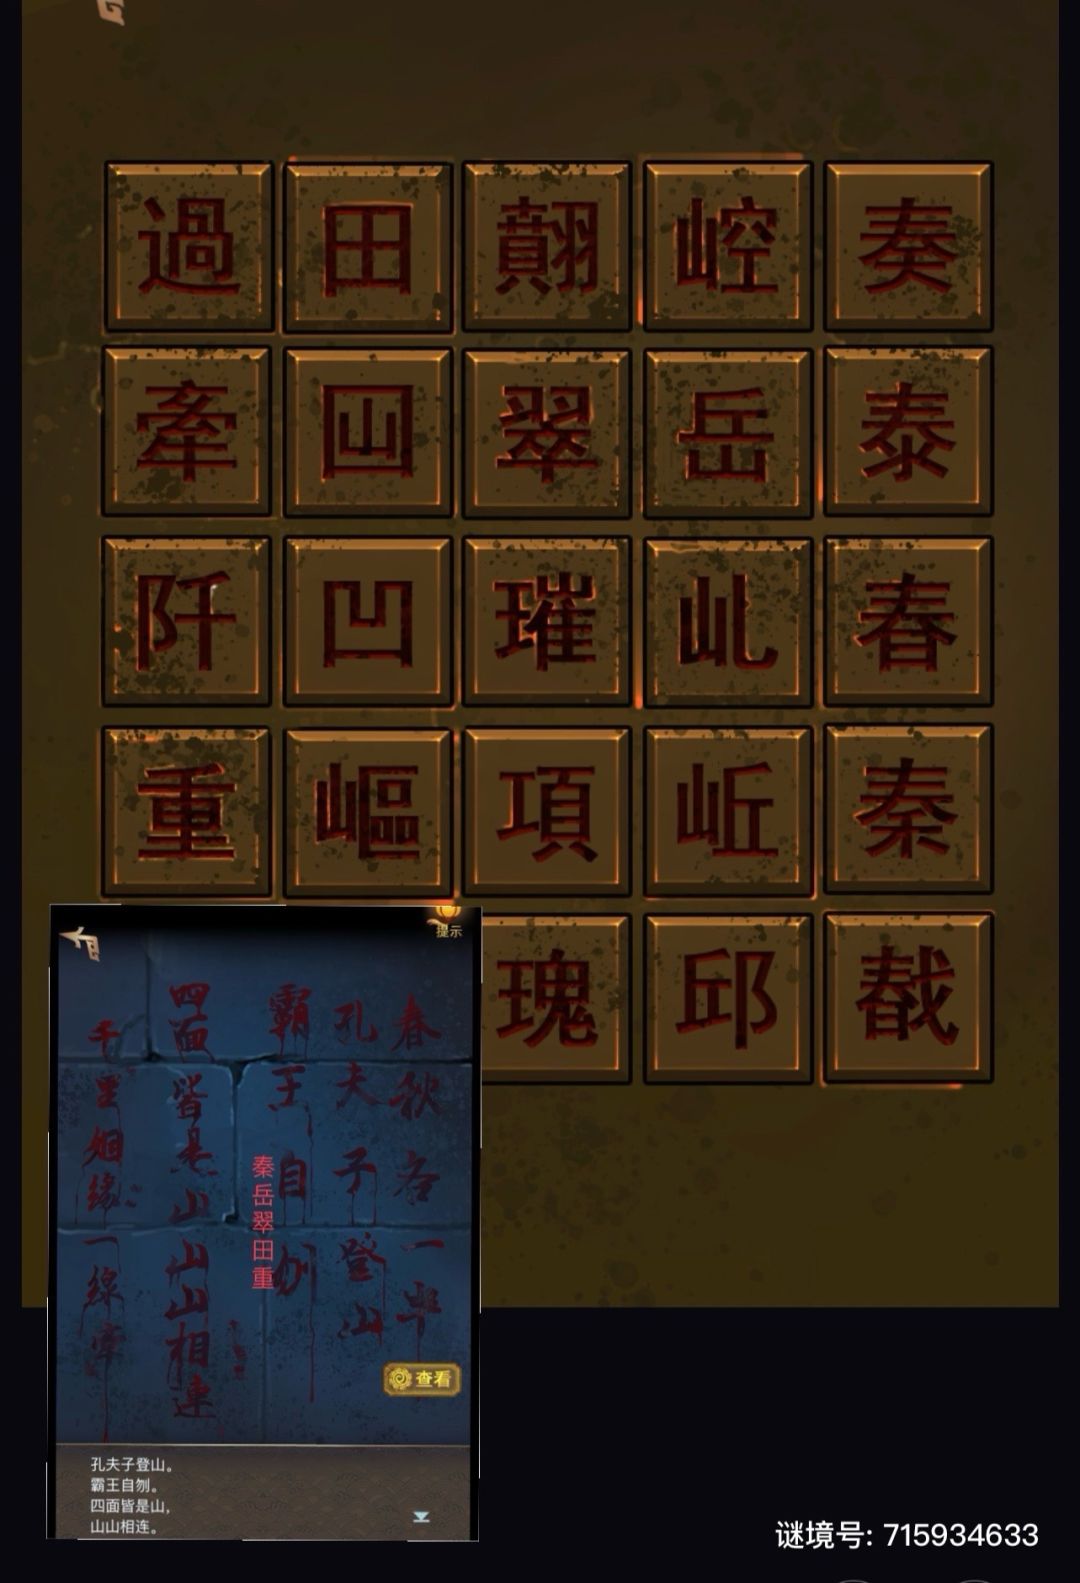 過 田 翸 崆 奏
牽 囬 翠 岳 泰
阡 凹 璀 乢 春
重 嶇 項 岴 秦
瑰 邱 戡
提示
春秋各一半
孔夫子登山
霸王自刎
四面皆是山
山山相連
千里姻緣一線牽
秦岳翠田重
查看
孔夫子登山。
霸王自刎。
四面皆是山,
山山相连。
谜境号: 715934633